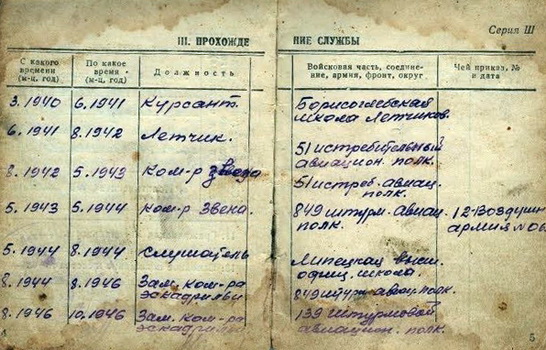 Серия III
III. ПРОХОЖДЕНИЕ СЛУЖБЫ
С какого времени (м-ц, год) По какое время (м-ц, год) Должность Войсковая часть, соединение, армия, фронт, округ Чей приказ, № и дата
3.1940 6.1941 Курсант. Борисоглебская
школа летчиков.
6.1941 8.1942 Летчик. 51 истребительный
авиацион. полк.
8.1942 5.1943 Ком-р звена 51 истреб. авиац.
полк.
5.1943 5.1944 Ком-р звена. 849 штурм. авиац. 12-воздушн
полк. армия №06
5.1944 8.1944 слушатель Липецкая высш.
офиц. школа.
8.1944 8.1946 Зам. ком-ра 849 штур. авиац. полк.
эскадрильи
8.1946 10.1946 Зам. ком-ра 139 штурмовой
эскадрильи авиацион. полк.
5